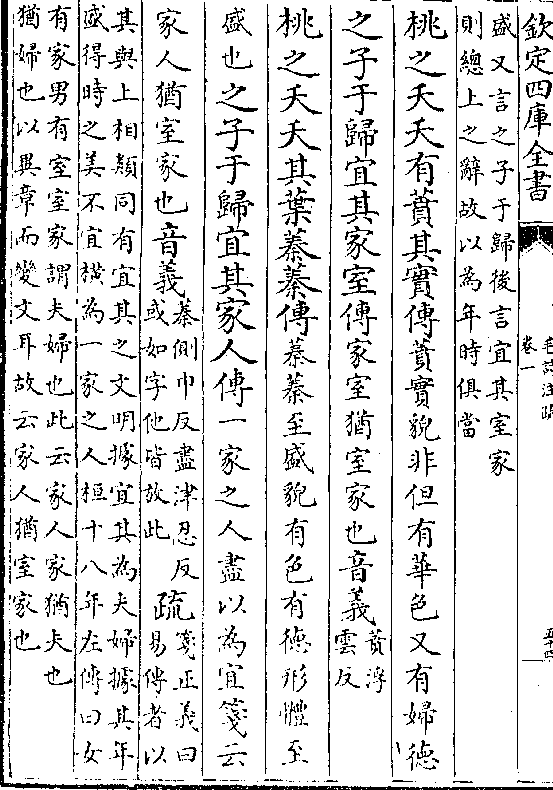 欽定四庫全書
毛詩注疏
卷一
五十四
盛又言之子于歸後言宜其室家
則總上之辭故以為年時俱當
桃之夭夭有蕡其實傳蕡實貌非但有華色又有婦德
之子于歸宜其家室傳家室猶室家也音義蕡浮
雲反
桃之夭夭其葉蓁蓁傳蓁蓁至盛貌有色有德形體至
盛也之子于歸宜其家人傳一家之人盡以為宜箋云
家人猶室家也音義蓁側巾反盡津忍反
或如字他皆放此
疏箋正義曰
易傳者以
其與上相類同有宜其之文明據宜其為夫婦據其年
盛得時之美不宜橫為一家之人桓十八年左傳曰女
有家男有室室家謂夫婦也此云家人家猶夫也
猶婦也以異章而變文耳故云家人猶室家也